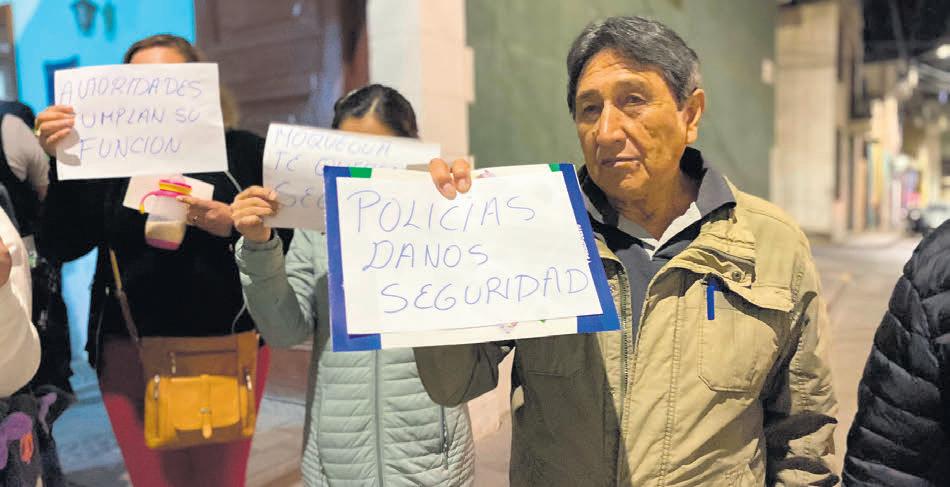 AUTORIDADES
CUMPLAN SU
FUNCION
MOQUEGUA
TE
POLICÍAS
DANOS
SEGURIDAD